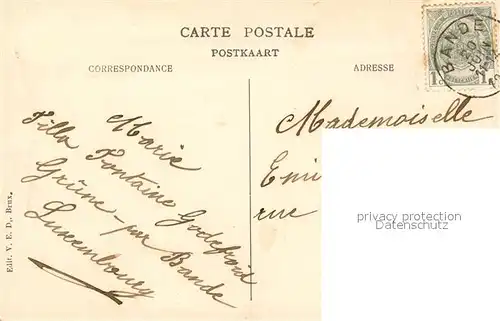 CARTE POSTALE
POSTKAART
CORRESPONDANCE
ADRESSE
BANDE
1c
Marie
Fontaine Godefroid
Grüne - par Bande
Luxembourg
Mademoiselle
Emi
rue
privacy protection
Datenschutz
Edit. V. E. D., Brux.